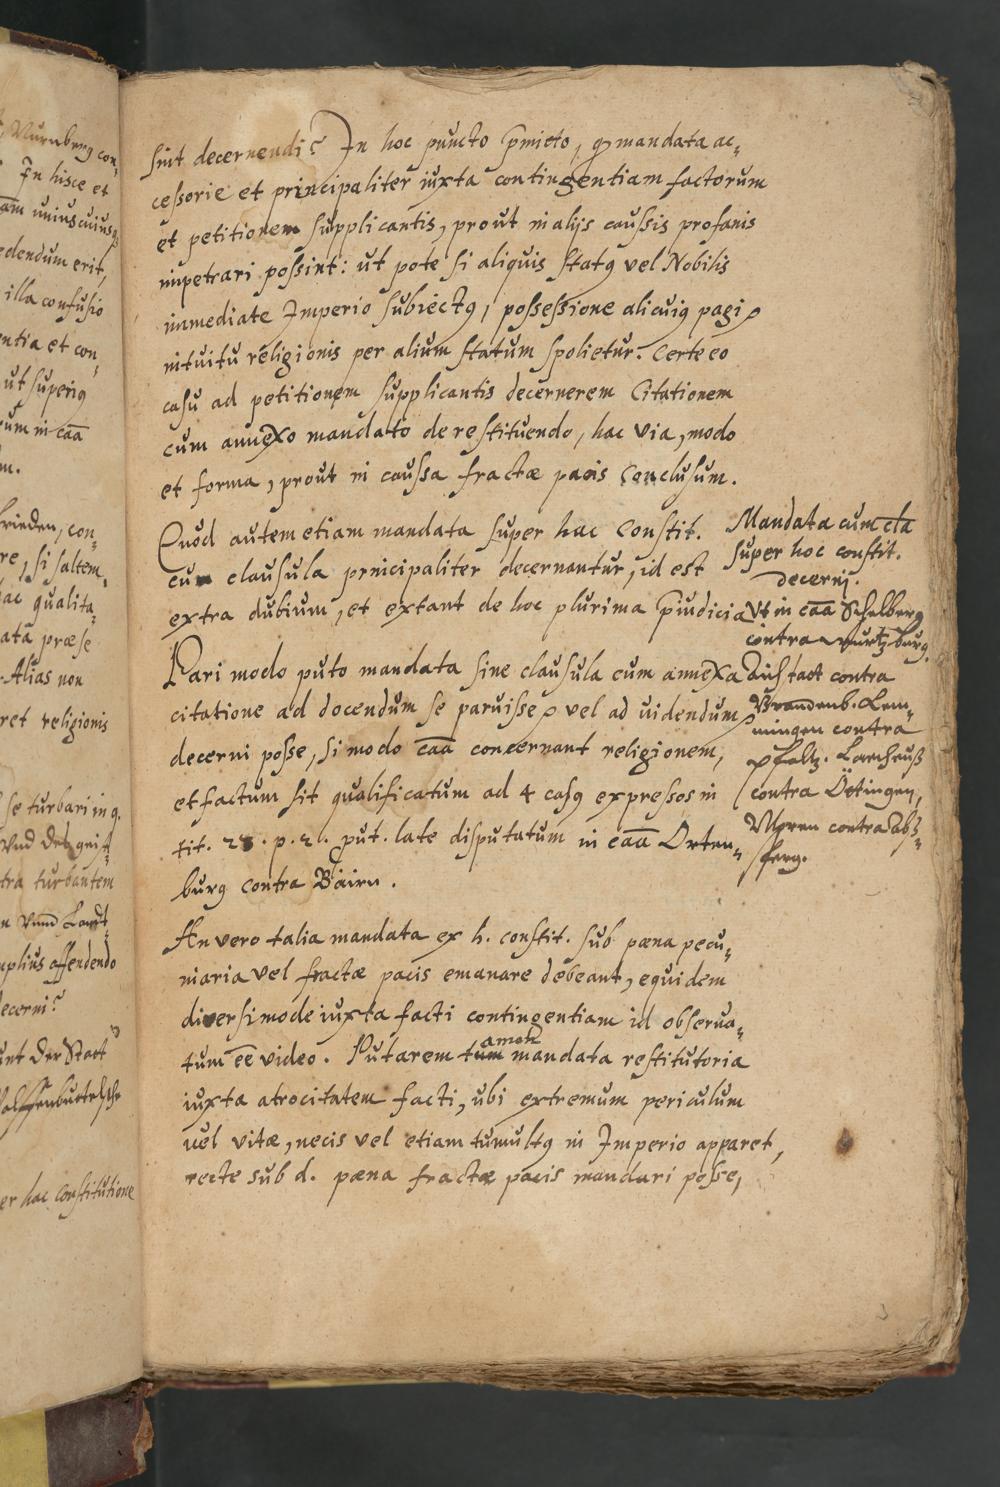 sint decernendi? In hoc puncto p̄mitto, q̄ mandata ac„
cessorie et principaliter iuxta contingentiam factorum
et petitionem supplicantis, prout in alijs caussis profanis
impetrari possint: ut pote si aliquis statꝰ vel Nobilis
immediate Imperio subiectꝰ, possessione alicuiꝰ pagi,
intuitu religionis per alium statum spolietur. Certe eo
casu ad petitionem supplicantis decernerem Citationem
cum annexo mandato de restituendo, hac via, modo
et forma, prout in caussa fractæ pacis conclusum.
Quod autem etiam mandata super hac Constit.
cum clausula principaliter decernantur, id est
extra dubium, et extant de hoc plurima p̄iudicia
Pari modo puto mandata sine clausula cum annexa
citatione ad docendum se paruisse, vel ad uidendum,
decerni posse, si modo cāā concernant religionem,
et factum sit qualificatum ad 4 casꝰ expressos in
tit. 23. p. 2. put. late disputatum in cāā Orten„
burg contra Bairn.
An vero talia mandata ex h. constit. sub pæna pecu„
niaria vel fractæ pacis emanare debeant, equidem
diversimode iuxta facti contingentiam id observa„
tum ēē video. Putarem tam̄ mandata restitutoria
iuxta atrocitatem facti, ubi extremum periculum
vel vitæ, necis vel etiam tumultꝰ in Imperio apparet,
recte sub d. pæna fractæ pacis mandari posse,
Mandata cum cla
super hoc constit.
decerni.
Ut in cāā Schelberg
contra Wurtzburg.
Aichstact contra
Brandenb. Lem„
mingen contra
Pfaltz.
contra Ötingen,
contra
sperg.
Nurnberg con„
In hisce et
am unius cuiusq
edendum erit,
illa confusio
entia et con„
ut superiꝰ
um in cāā
m.
rieden, con„
re, si saltem
ac qualita„
ata præse
Alias non
ret religionis
se turbari in q.
vnd des geist
tra turbantem
n vnnd Landt
mplius offendendo
decerni?
unt der Statt
Wolffenbuttelsche
er hac constitutione